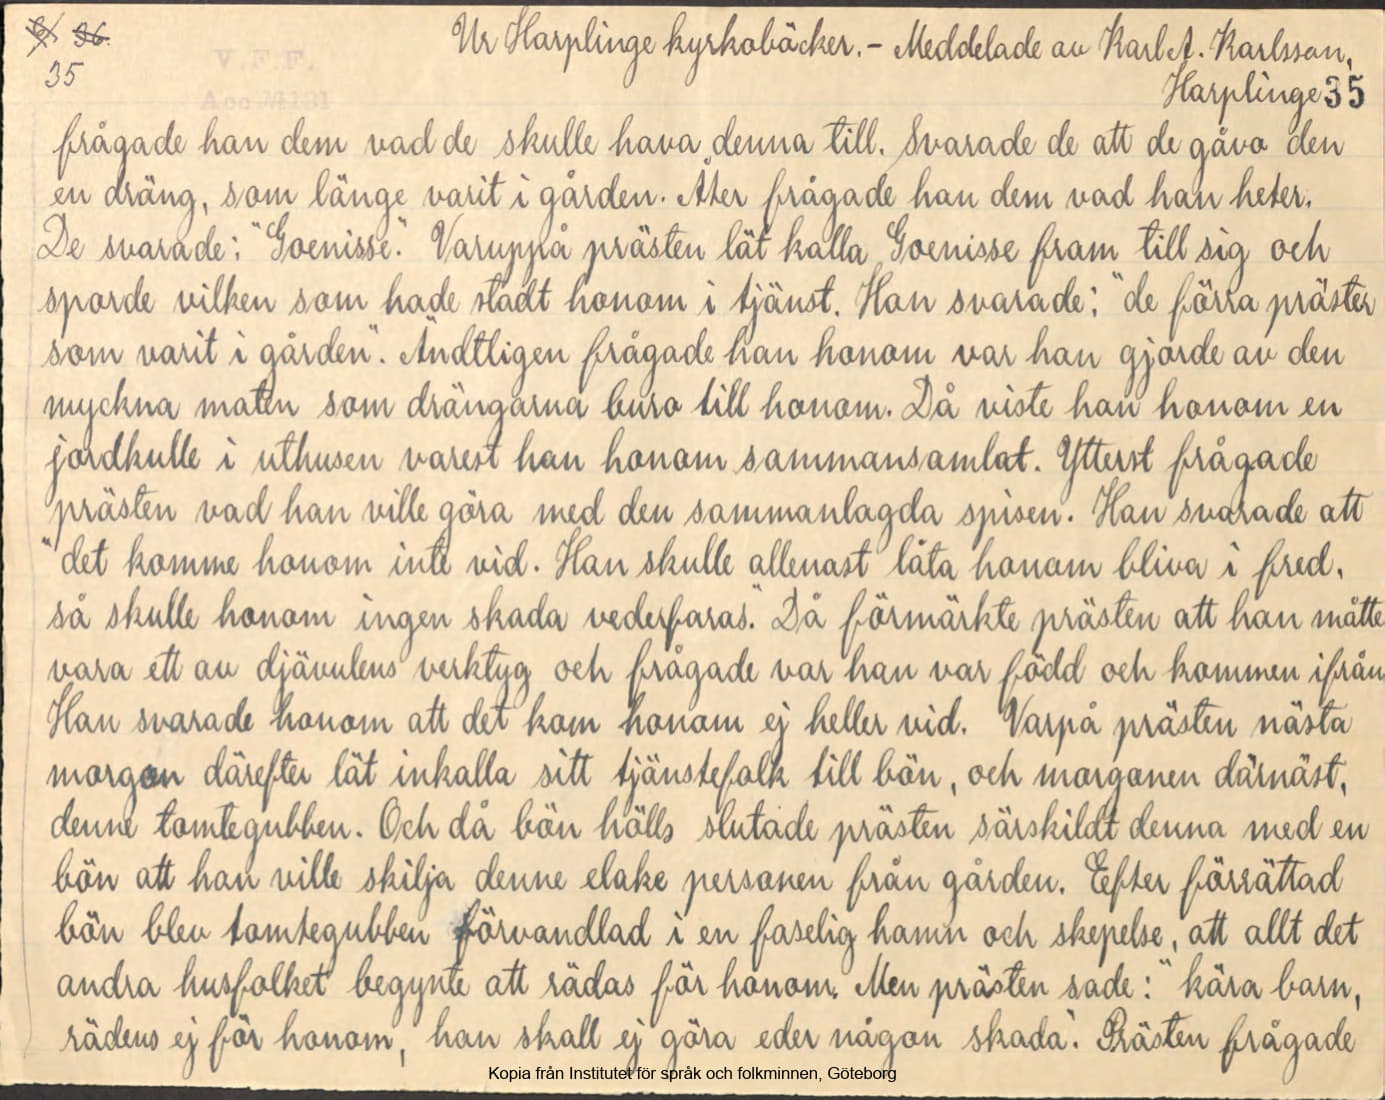 6/ 36.
35
V.F.F.
Ur Harplinge kyrkoböcker. - Meddelade av Karl A. Karlsson,
Harplinge 35
frågade han dem vad de skulle hava denna till. Svarade de att de gåvo den
en dräng, som länge varit i gården. Åter frågade han dem vad han heter.
De svarade: "Goenisse". Varuppå prästen lät kalla Goenisse fram till sig och
sporde vilken som hade stadt honom i tjänst. Han svarade: "de förra präster
som varit i gården". Ändtligen frågade han honom var han gjorde av den
myckna maten som drängarna buro till honom. Då viste han honom en
jordkulle i uthusen varest han honom sammansamlat. Ytterst frågade
prästen vad han ville göra med den sammanlagda spisen. Han svarade att
"det komme honom inte vid. Han skulle allenast låta honom bliva i fred,
så skulle honom ingen skada vederfaras". Då förmärkte prästen att han måtte
vara ett av djävulens verktyg och frågade var han var född och kommen ifrån.
Han svarade honom att det kom honom ej heller vid. Varpå prästen nästa
morgon därefter lät inkalla sitt tjänstefolk till bön, och morgonen därnäst,
denne tomtegubben. Och då bön hölls slutade prästen särskildt denna med en
bön att han ville skilja denne elake personen från gården. Eefter förrättad
bön blev tomtegubben förvandlad i en faselig hamn och skepelse, att allt det
andra husfolket begynte att rädas för honom. Men prästen sade: "kära barn,
rädens ej för honom, han skall ej göra eder någon skada". Prästen frågade
Kopia från Institutet för språk och folkminnen, Göteborg